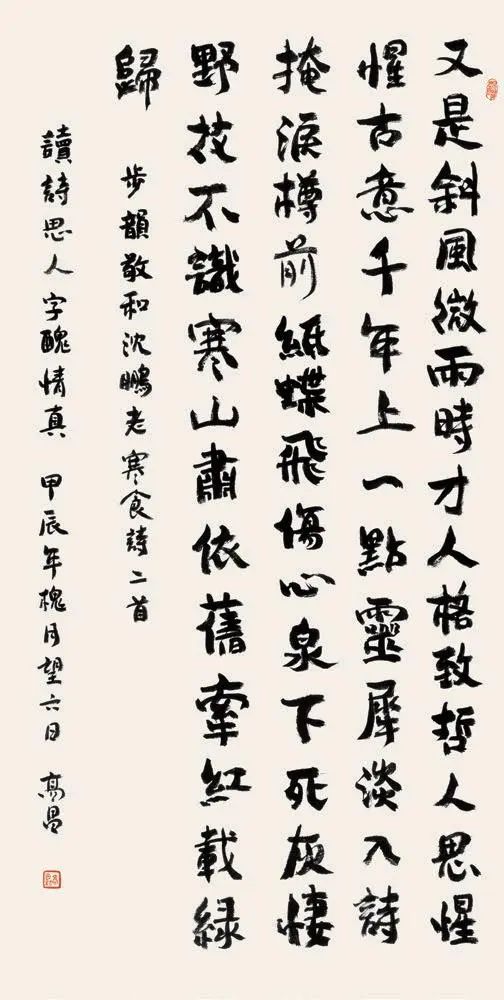 又是斜風微雨時才人格致哲人思惺
惺古意千年上一點靈犀淡入詩
掩淚樽前紙蝶飛傷心泉下死灰悽
野枝不識寒山肅依舊牽紅載綠
歸 步韻敬和沈鵬老寒食詩二首
讀詩思人字醜情真 甲辰年槐月望六日 高昌